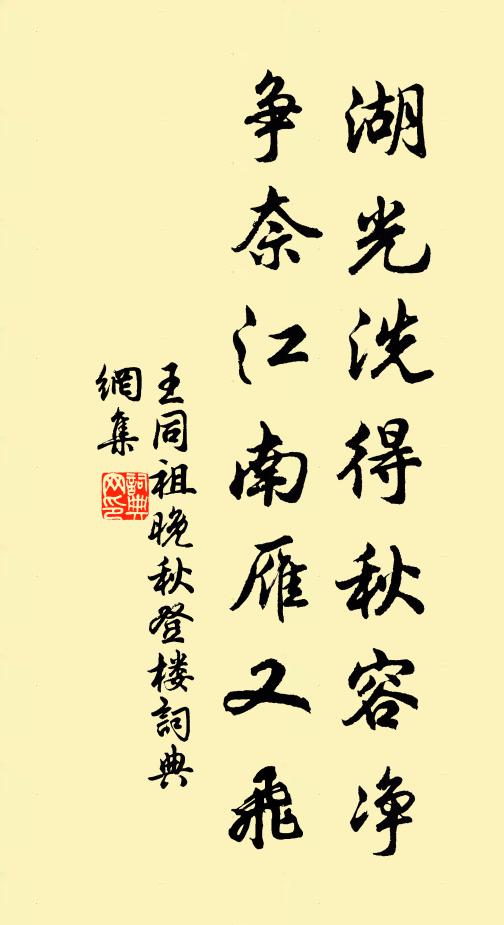 湖光洗得秋容净
争奈江南雁又飛
王同祖晚秋登楼詞典
網集
詞典
网印